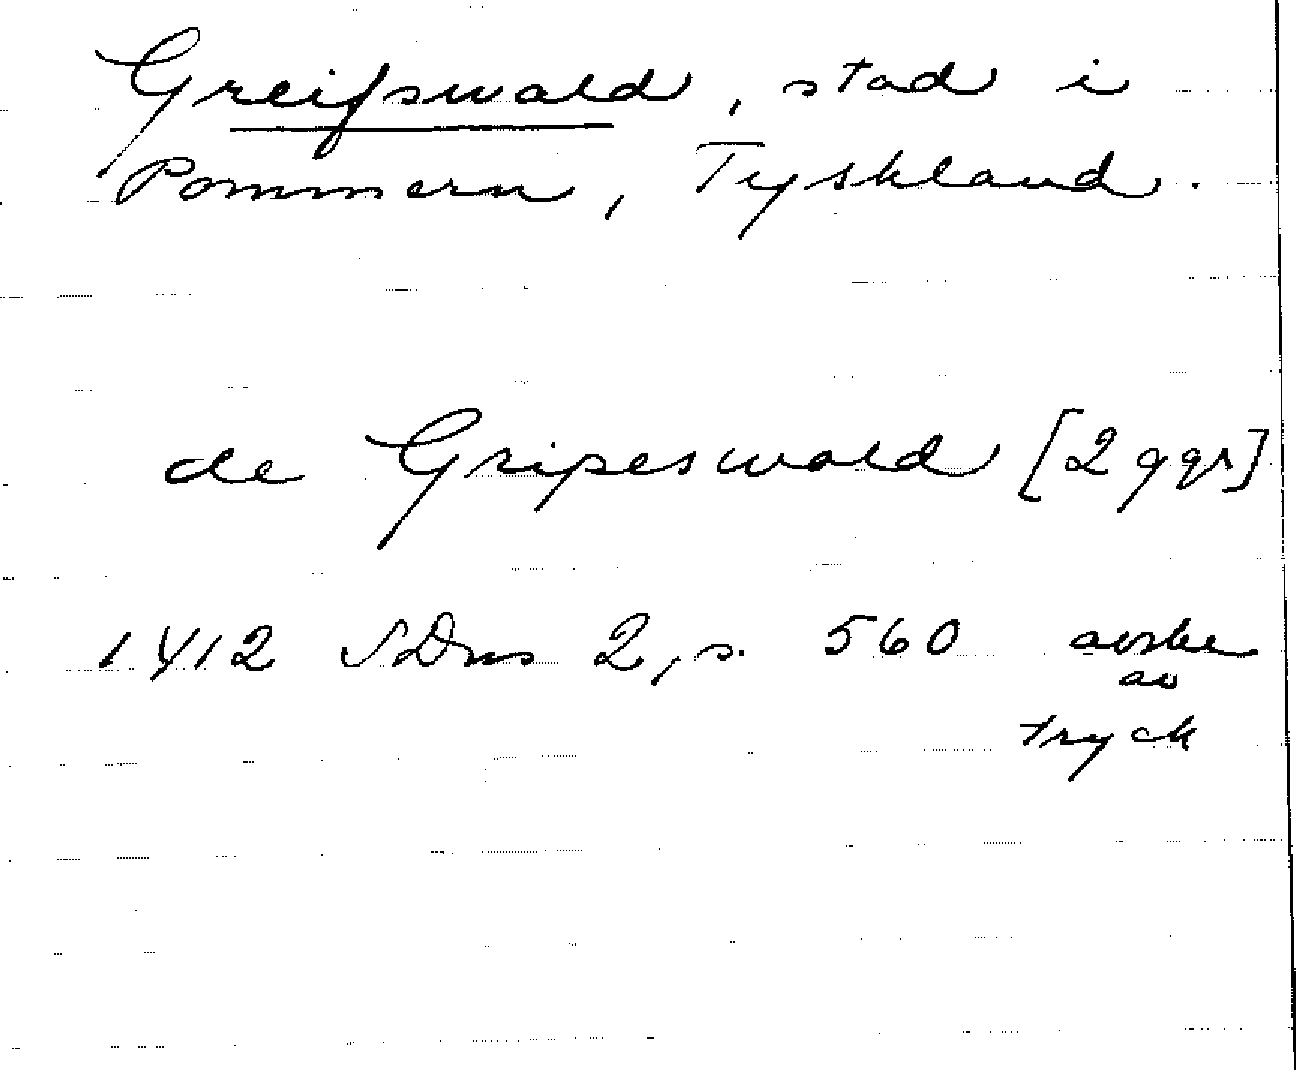 Greifswald, stad i
Pommern, Tyskland.
de Gripeswald [2 ggr]
1412 SDns 2, s. 560
av
tryck